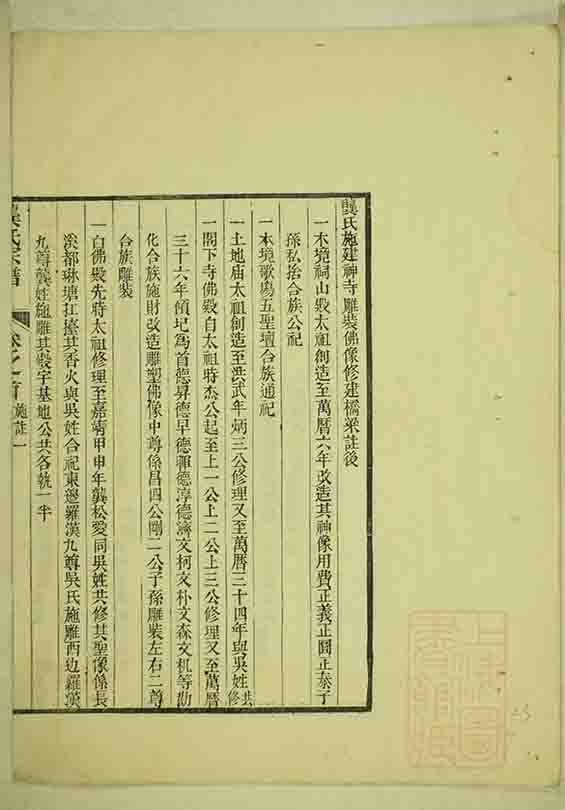 龔氏施建神寺雕裝佛像修建橋梁註後
一本境祠山殿太祖創造至萬曆六年改造其神像用費正義正圓正泰子
孫私捨合族公祀
一本境歌塲五聖壇合族通祀
一土地庙太祖創造至洪武年炳三公修理又至萬曆三十四年與吳姓共修
一閣下寺佛殿自太祖時杰公起至上一公上二公上三公修理又至萬曆
三十六年傾圮爲首德昇德早德渾德淳德濟文柯文朴文森文机等勸
化合族施財改造雕塑佛像中尊係昌四公剛二公子孫雕裝左右二尊
合族雕裝
一白佛殿先時太祖修理至嘉靖甲申年龔松愛同吳姓共修其聖像係長
溪都琳塘扛擡其香火與吳姓合祀東邊羅漢九尊吳氏施雕西边羅漢
九尊龔姓施雕其殿宇基地公共各執一半
龔氏宗譜
卷之首
施註一